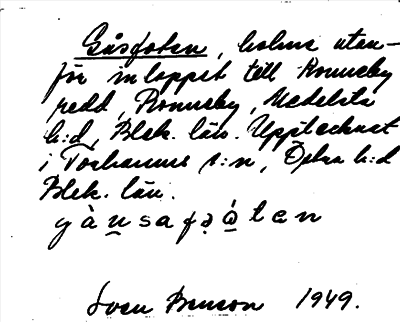 Gåsfoten, holme utan-
för inloppet till Ronneby
redd, Ronneby, Medelsta
h:d, Blek. län. Upptecknat
i Torhamns s:n, Östra h:d
Blek. län.
Sven Benson 1949.